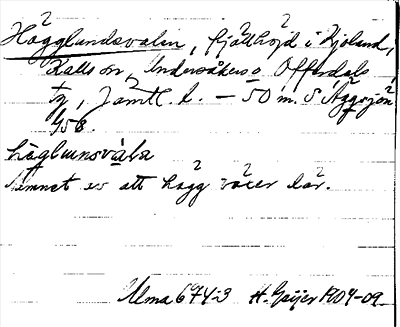 Högglundsvalen, fjällhöjd i Kjoland,
Kalls sn, Undersåkers o. Offerdals
tg, Jämtl. l. – 50 m. S Äggsjön
458.
höglunsvàła
Ämnet er att högg växer där.
Ulma 674:3 H. Geijer 1904-09.